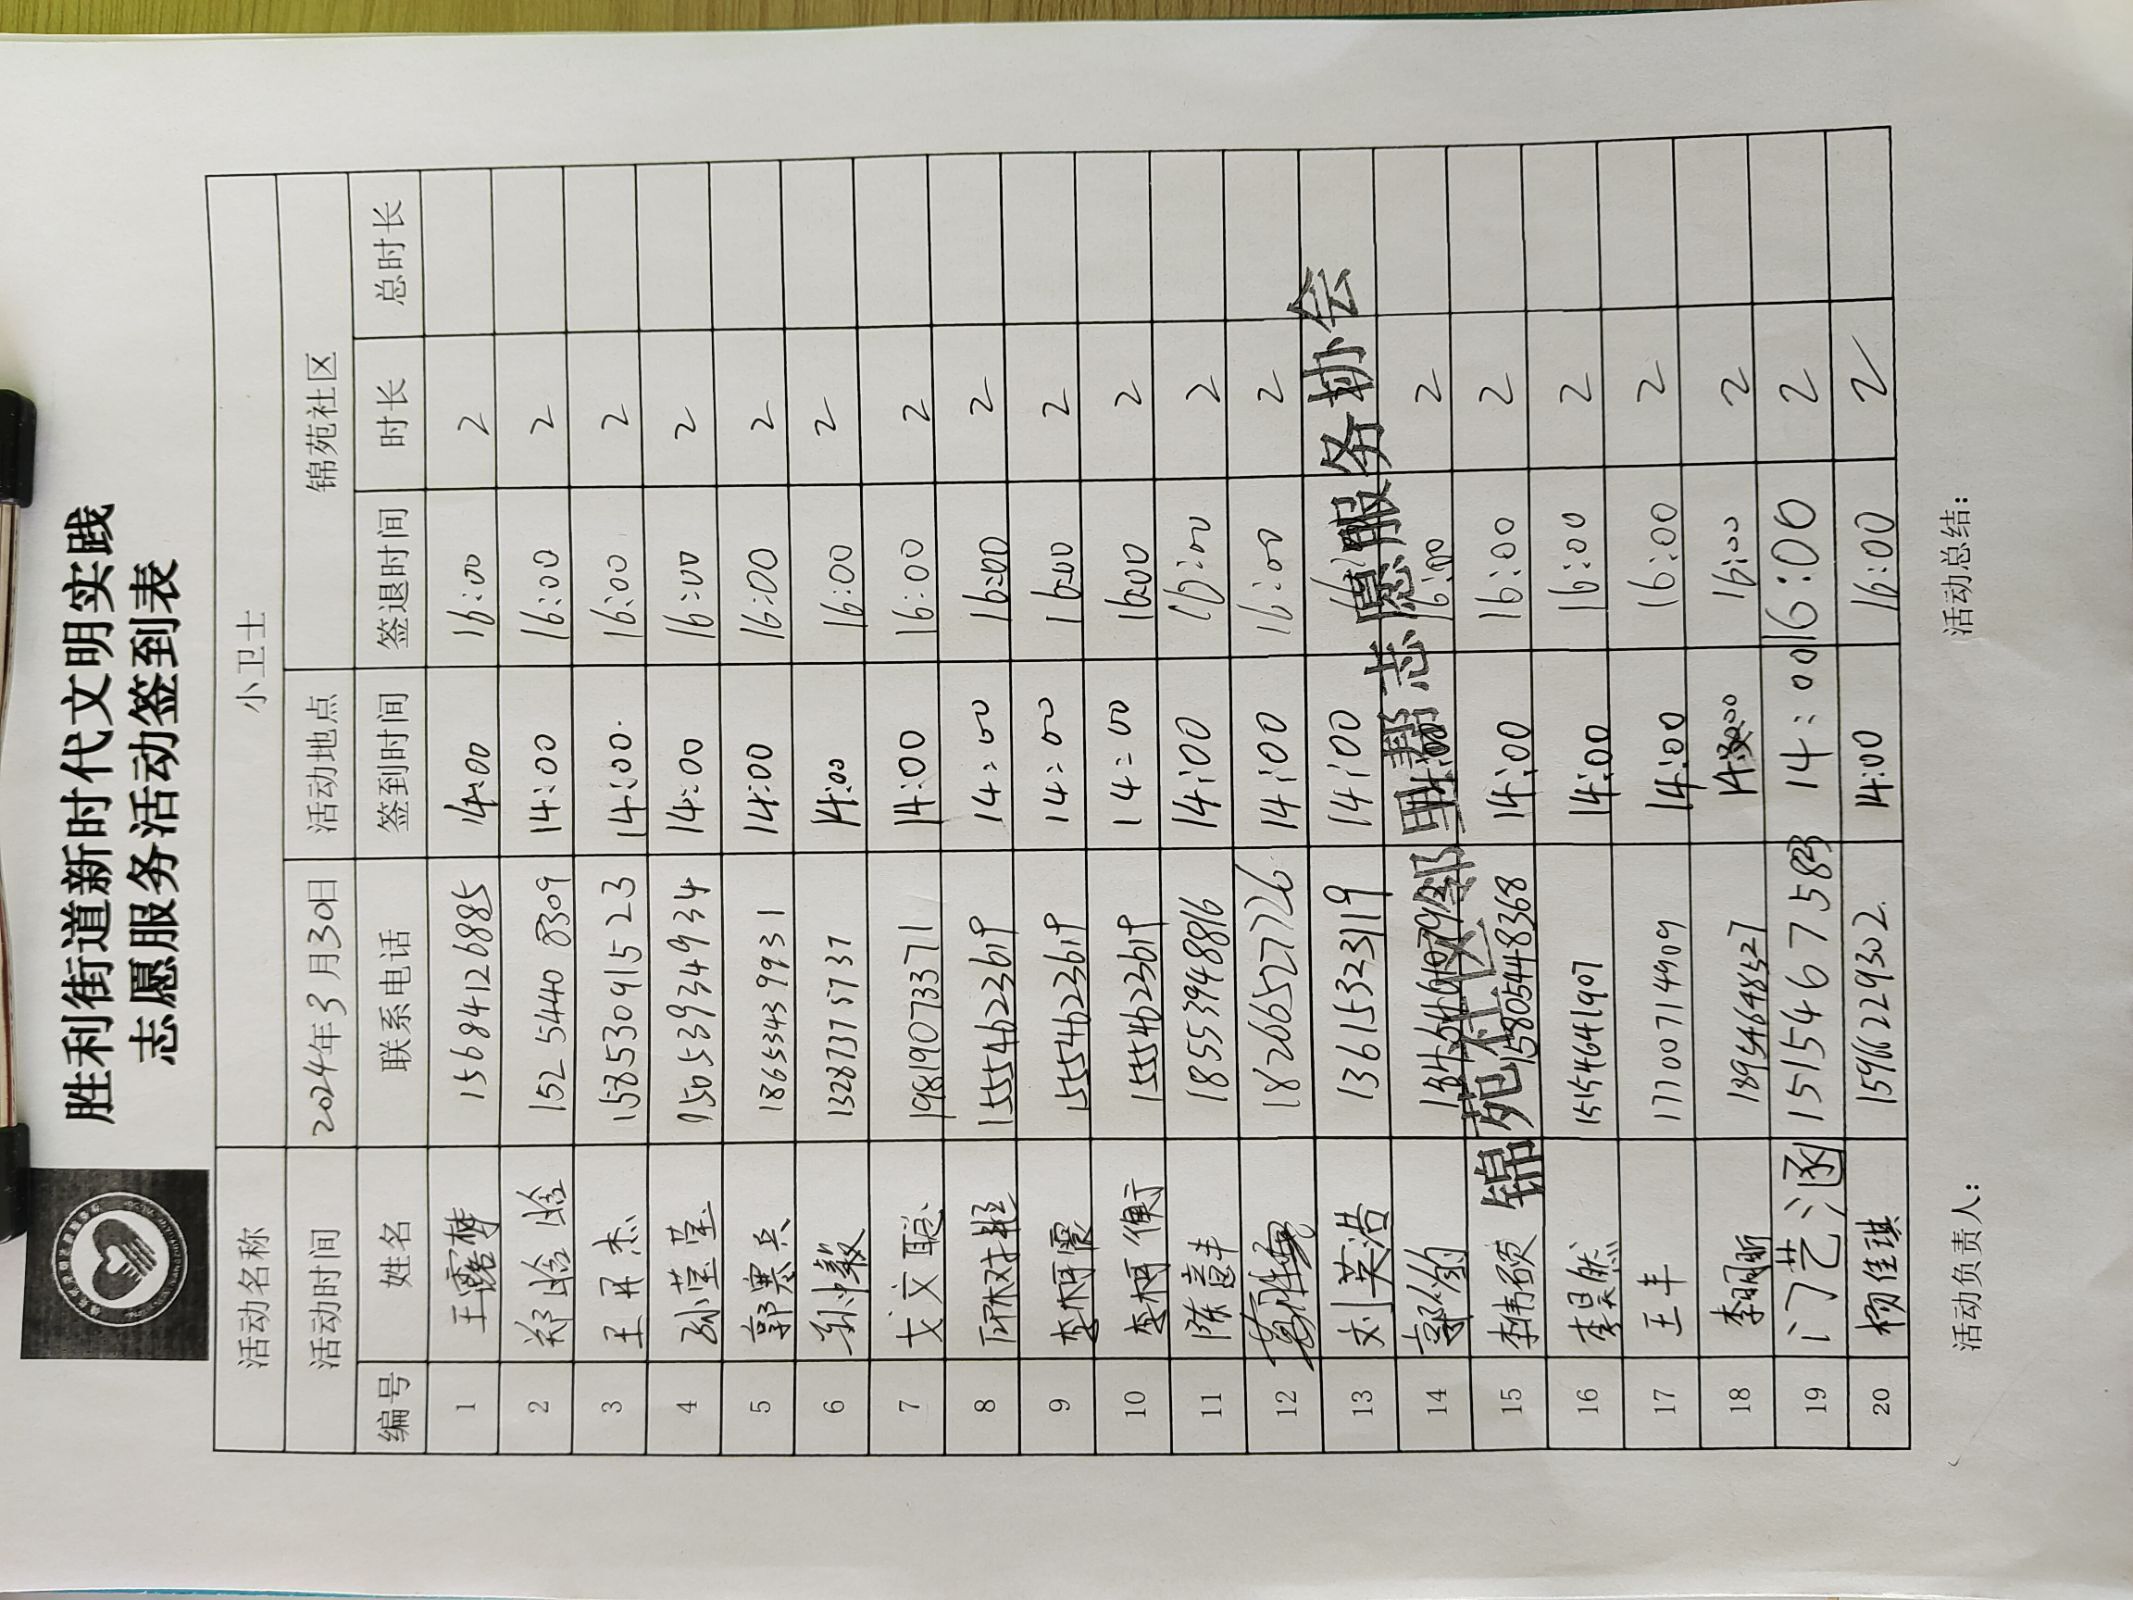 胜利街道新时代文明实践
志愿服务活动签到表
活动名称 小卫士
活动时间 2024年3月30日 活动地点 锦苑社区
编号 姓名 联系电话 签到时间 签退时间 时长 总时长
1 王露梦 15684126885 14:00 16:00 2
2 郑晗晗 15254408309 14:00 16:00 2
3 王开杰 15853091523 14:00 16:00 2
4 孙莹莹 15053934934 14:00 16:00 2
5 郭寒兵 18653439931 14:00 16:00 2
6 13287375737 14:00 16:00 2
7 文聪 19819073371 14:00 16:00 2
8 15554623619 14:00 16:00 2
9 15554623619 14:00 16:00 2
10 15554623619 14:00 16:00 2
11 陈意丰 18553948816 14:00 16:00 2
12 18266527726 14:00 16:00 2
13 刘英浩 13615323119 14:00
14 16:00 2
15 李伟硕 15805448368 14:00 16:00 2
16 李昊然 15154641907 14:00 16:00 2
17 王丰 17700714909 14:00 16:00 2
18 18954648527 16:00 2
19 门艺涵 14:00 16:00 2
20 杨佳琪 15966229302 14:00 16:00 2
锦苑社区邻里帮志愿服务协会
活动负责人： 活动总结：